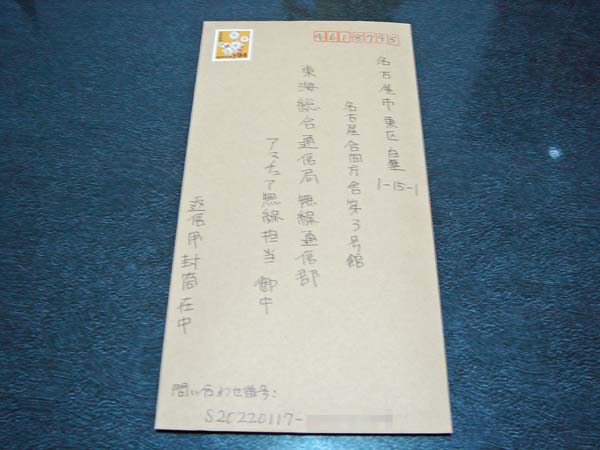 4618795
名古屋市東区白壁1-15-1
名古屋合同庁舎第3号館
東海総合通信局無線通信部
アマチュア無線担当 御中
返信用封筒在中
問い合わせ番号:
S20220117-